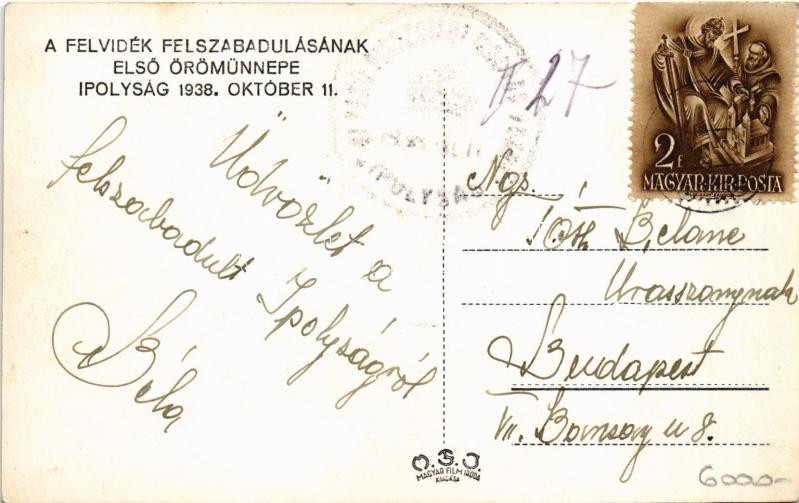 A FELVIDÉK FELSZABADULÁSÁNAK
ELSŐ ÖRÖMÜNNEPE
IPOLYSÁG 1938. OKTÓBER 11.
Üdvözlet a
felszabadult Ipolyságról
Béla
IPOLYSÁG
27
2f
MAGYAR·KIR·POSTA
Ngs.
Tóth Béláné
Urasszonynak
Budapest
VII. u 8.
M.F.I.
MAGYAR FILM IRODA
KIADÁSA
6000-